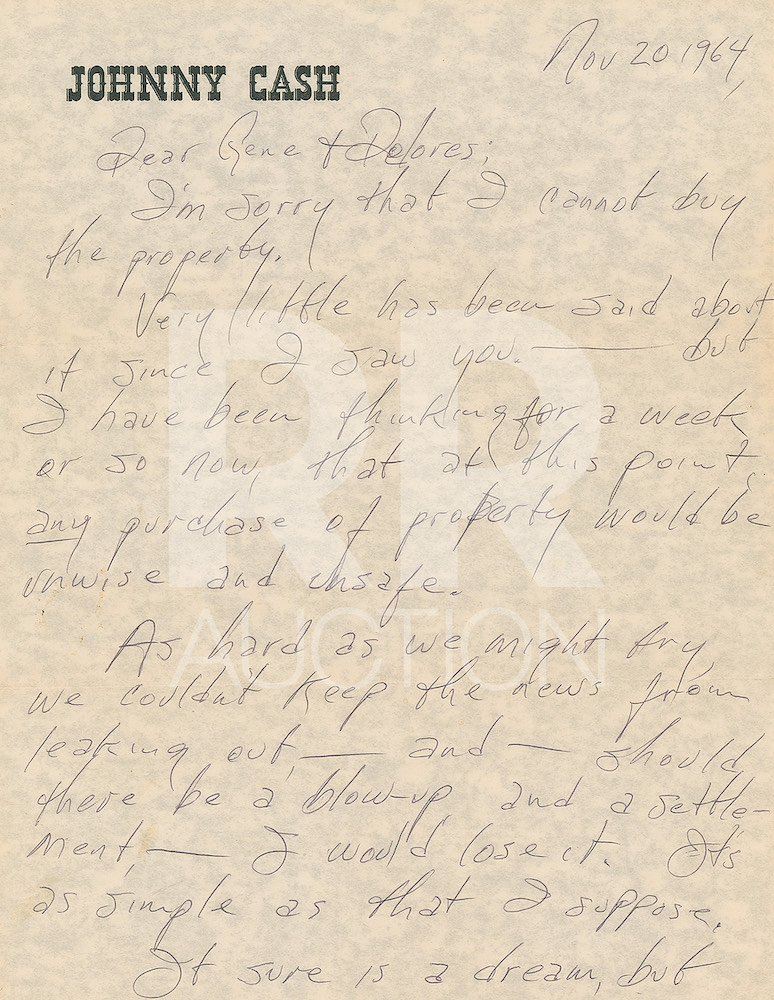 Nov 20 1964,
JOHNNY CASH
Dear Gene & Dolores;
I'm sorry that I cannot buy
the property.
Very little has been said about
it since I saw you. —— but
I have been thinking for a week
or so now, that at this point,
any purchase of property would be
unwise and unsafe.
As hard as we might try,
we couldn't keep the news from
leaking out, — and — should
there be a blow-up, and a settle-
ment, — I would lose it. It's
as simple as that I suppose.
It sure is a dream, but
RR
AUCTION